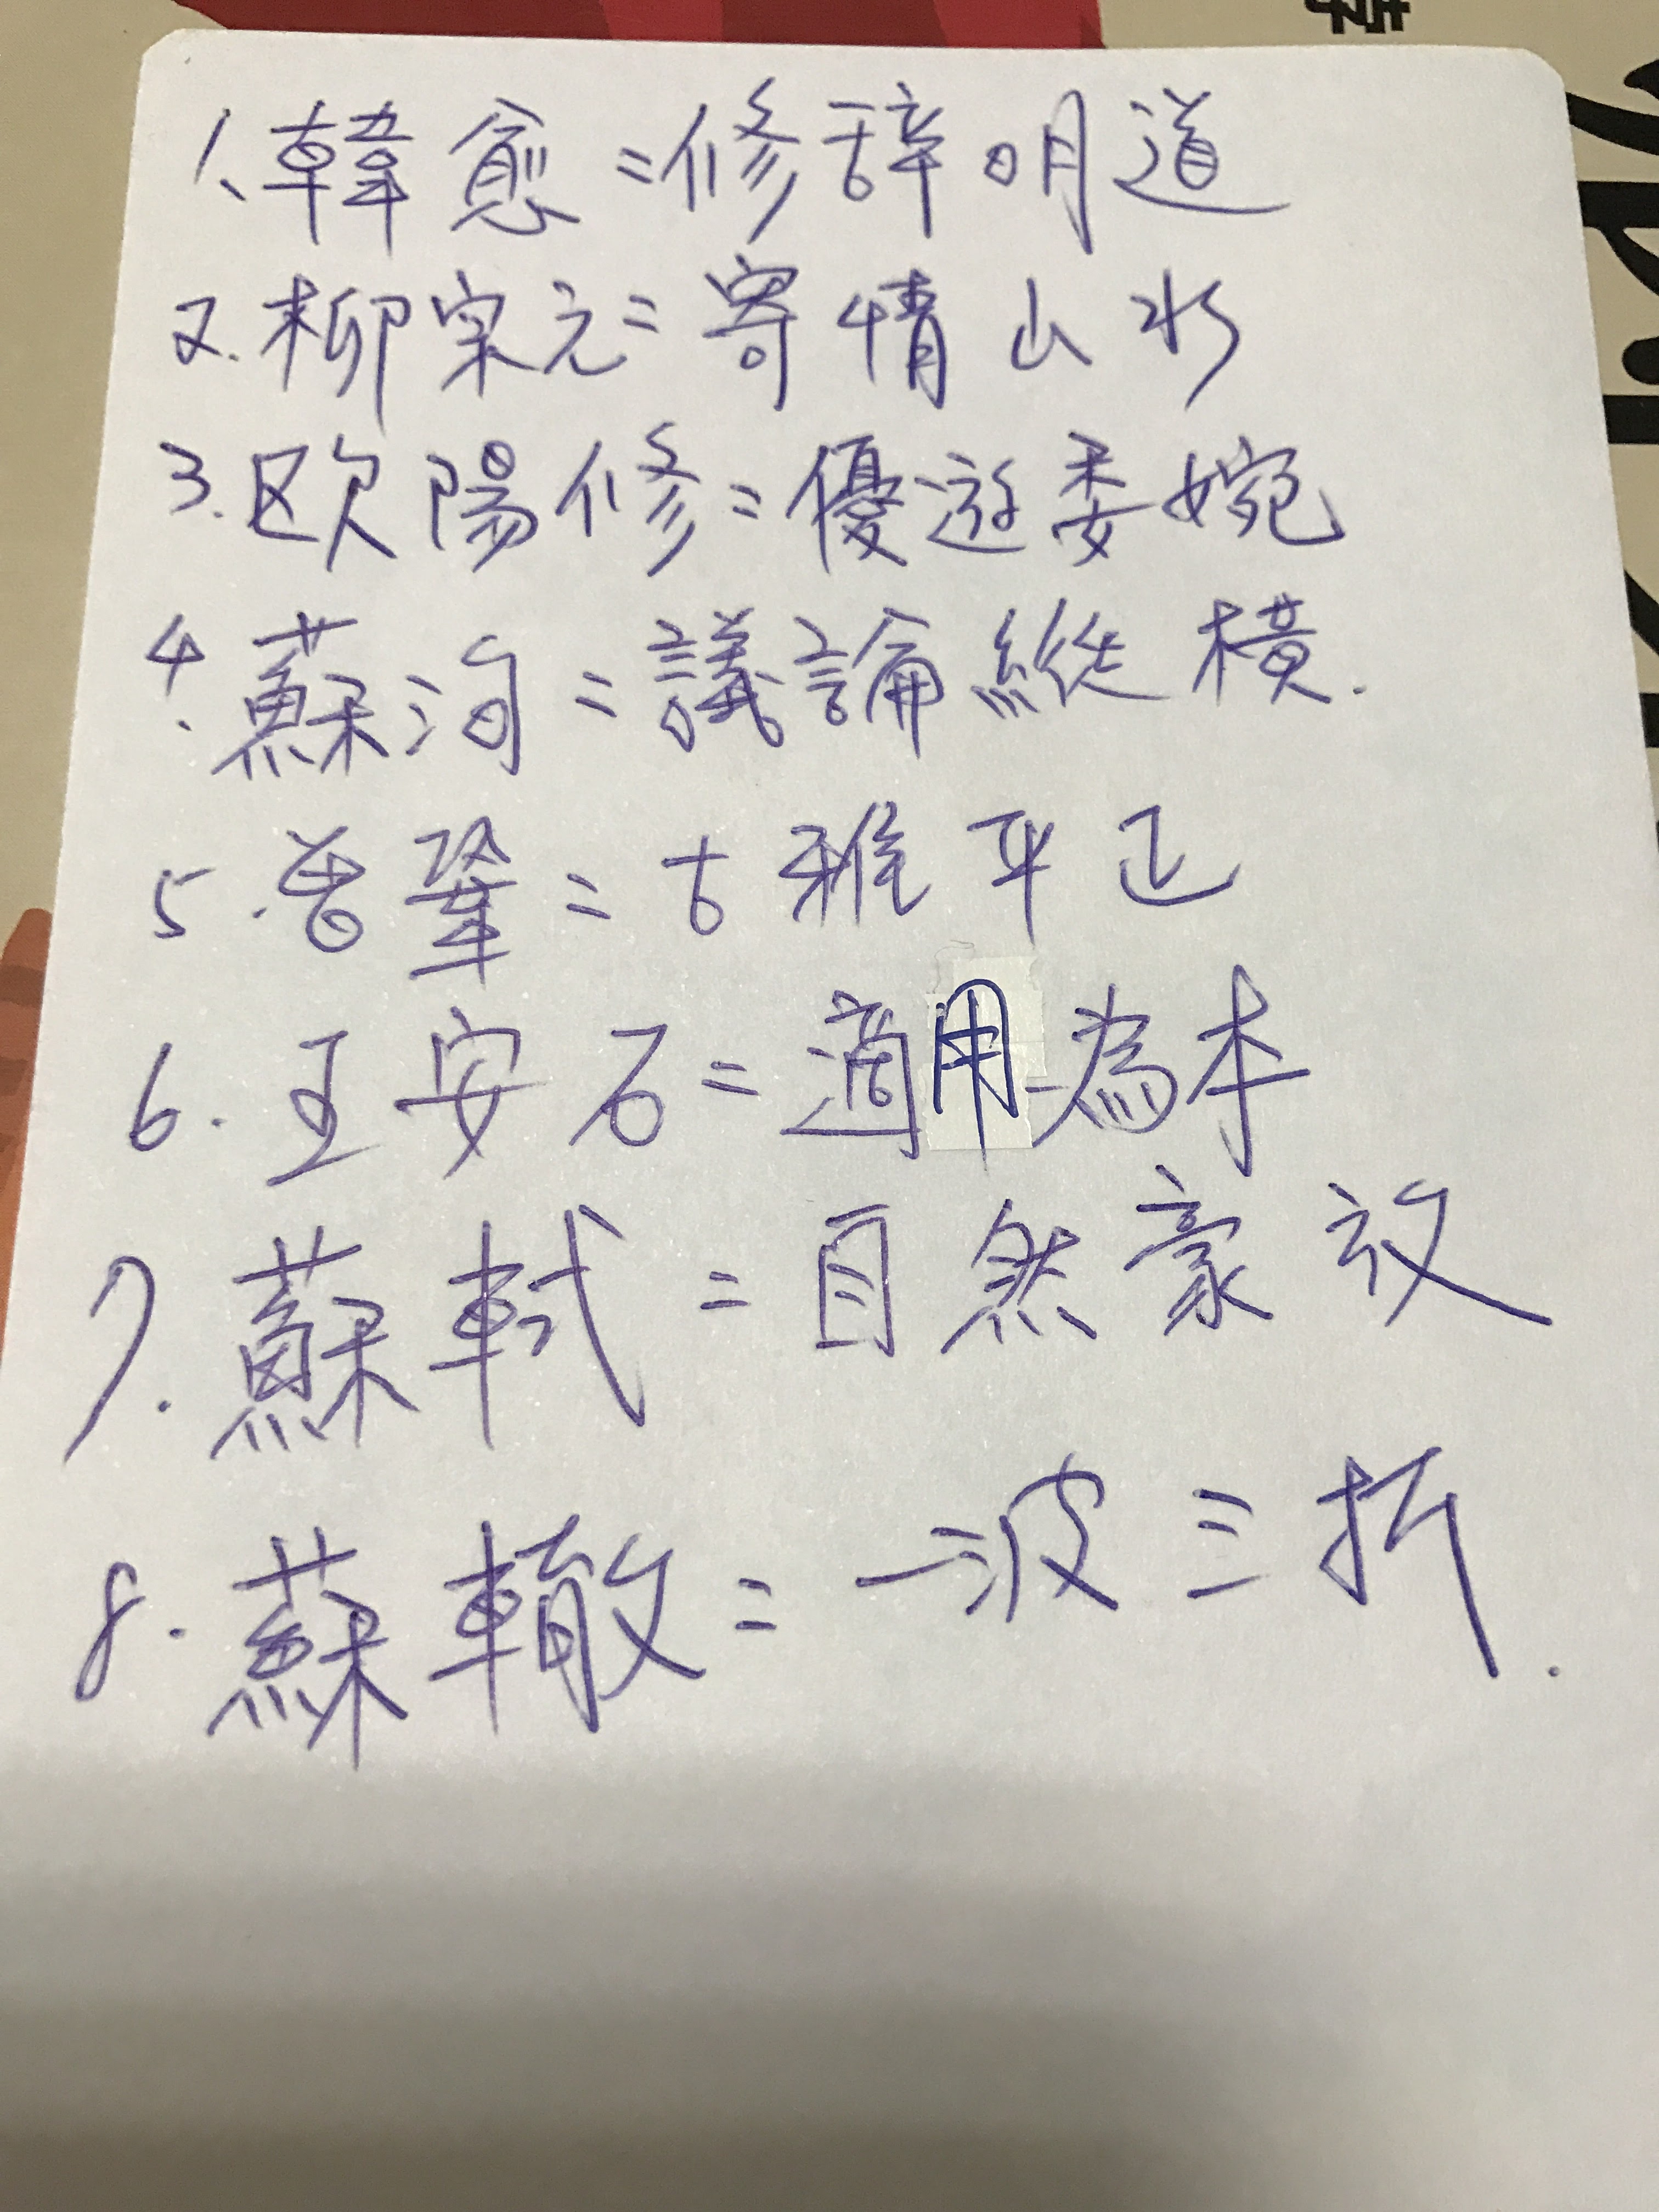 1、韓愈=修辞明道
2.柳宗元=寄情山水
3.欧陽修=優遊委婉
4.蘇洵=議論縱橫.
5.曾鞏=古雅平正
6.王安石=適用為本
7.蘇軾=自然豪放
8.蘇轍=一波三折.